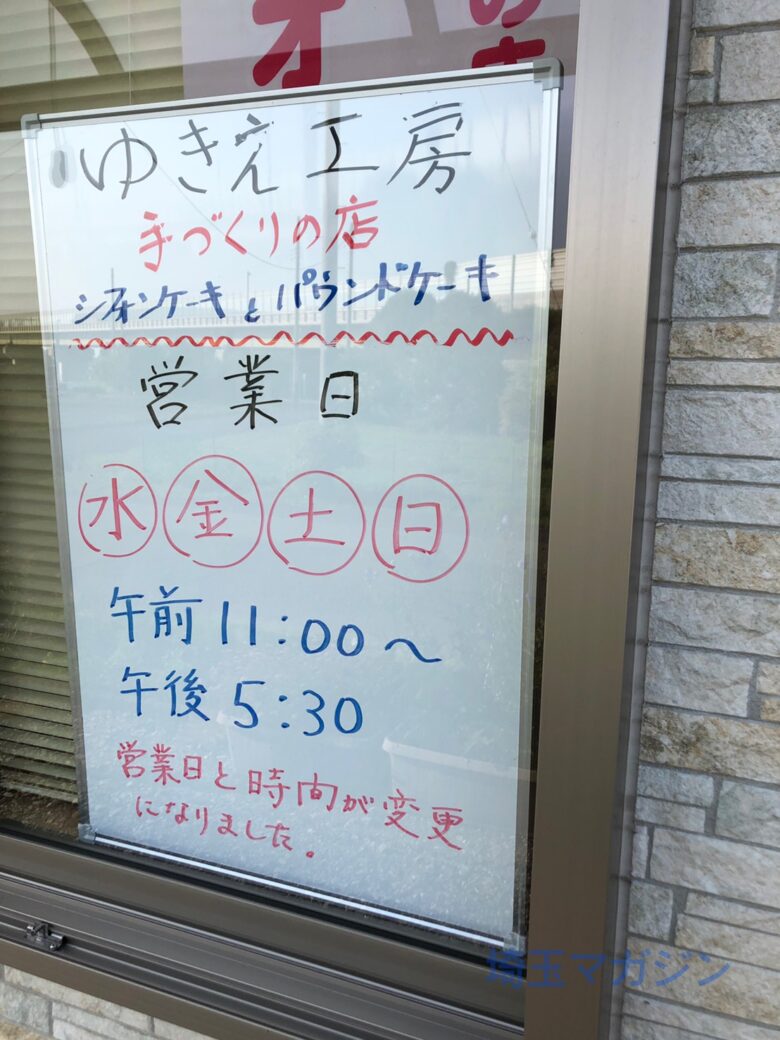 オ
ゆきえ工房
手づくりの店
シフォンケーキとパウンドケーキ
営業日
水金土日
午前11:00〜
午後5:30
営業日と時間が変更
になりました。
埼玉マガジン